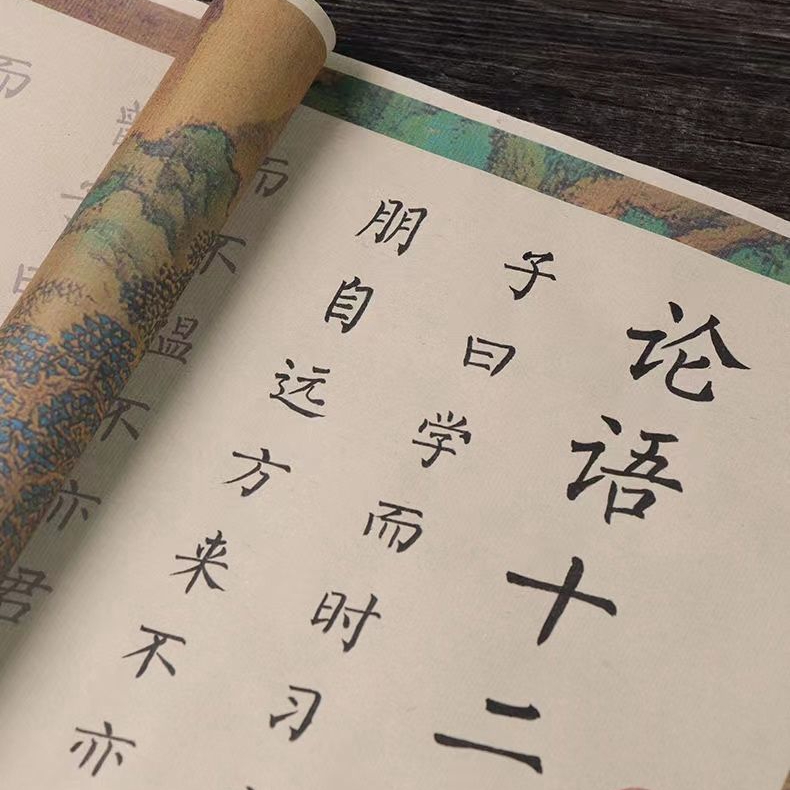 论语十二
子曰学而时习
朋自远方来不亦
而不愠不亦君